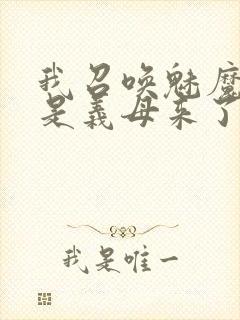 我召唤魅魔
是义母来了
我是唯一